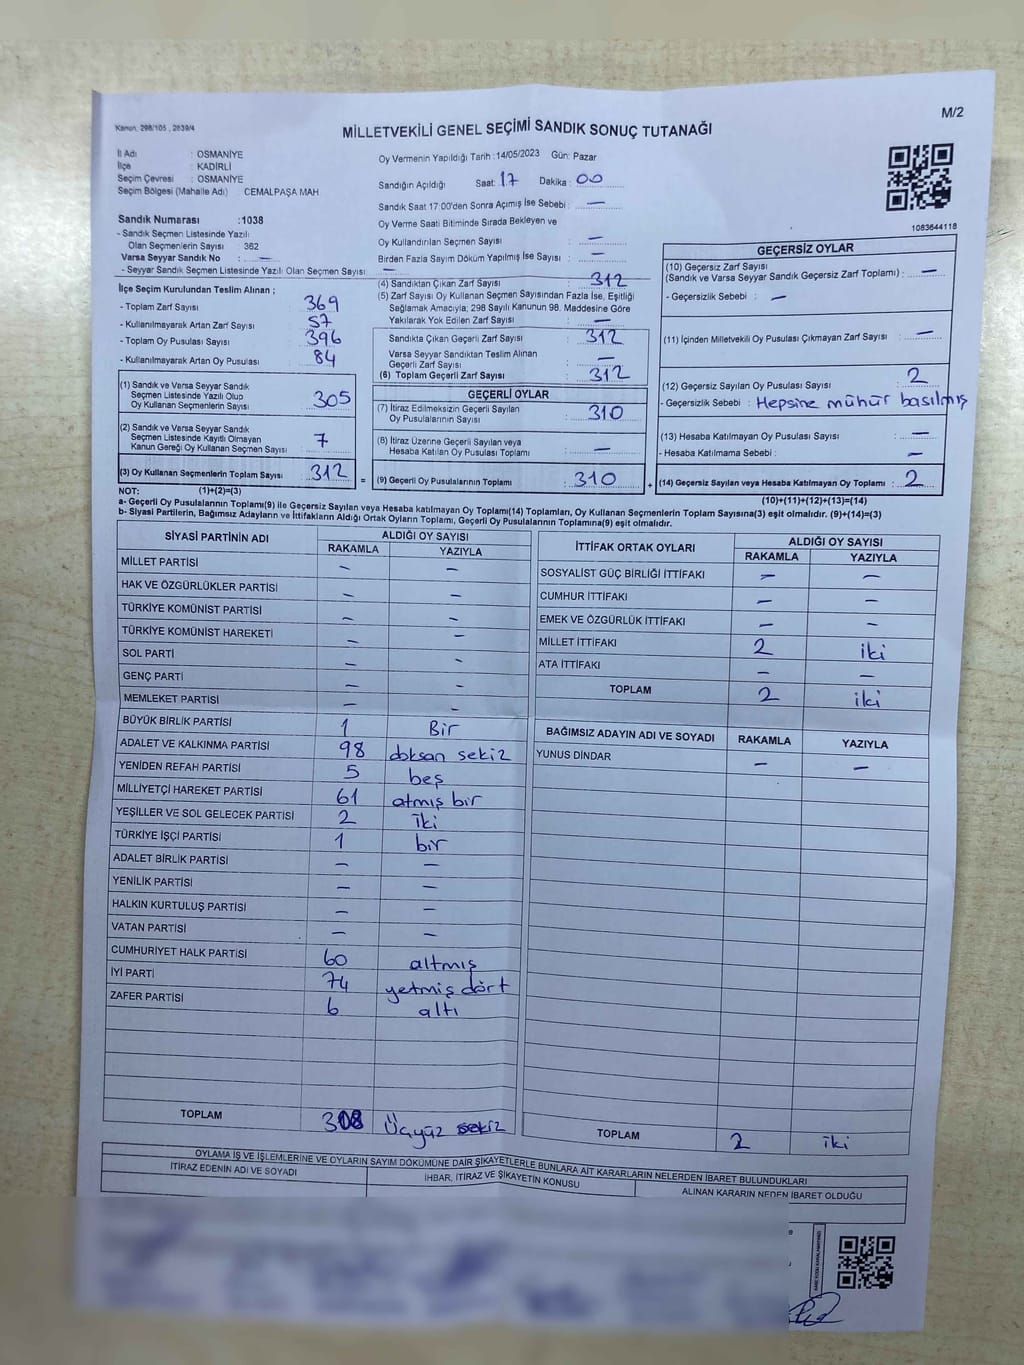 Kanun: 298/105 , 2839/4
M/2
MİLLETVEKİLİ GENEL SEÇİMİ SANDIK SONUÇ TUTANAĞI
İl Adı : OSMANİYE
İlçe : KADİRLİ
Seçim Çevresi : OSMANİYE
Seçim Bölgesi (Mahalle Adı) CEMALPAŞA MAH
Oy Vermenin Yapıldığı Tarih :14/05/2023 Gün: Pazar
Sandığın Açıldığı Saat: 17 Dakika : 00
Sandık Saat 17:00'den Sonra Açımış İse Sebebi : —
Sandık Numarası :1038
- Sandık Seçmen Listesinde Yazılı
Olan Seçmenlerin Sayısı : 362
Varsa Seyyar Sandık No : —
- Seyyar Sandık Seçmen Listesinde Yazılı Olan Seçmen Sayısı : —
Oy Verme Saati Bitiminde Sırada Bekleyen ve
Oy Kullandırılan Seçmen Sayısı : —
Birden Fazla Sayım Döküm Yapılmış İse Sayısı : —
1083644118
İlçe Seçim Kurulundan Teslim Alınan ;
- Toplam Zarf Sayısı 369
- Kullanılmayarak Artan Zarf Sayısı 57
- Toplam Oy Pusulası Sayısı 396
- Kullanılmayarak Artan Oy Pusulası 84
(1) Sandık ve Varsa Seyyar Sandık
Seçmen Listesinde Yazılı Olup
Oy Kullanan Seçmenlerin Sayısı : 305
(2) Sandık ve Varsa Seyyar Sandık
Seçmen Listesinde Kayıtlı Olmayan
Kanun Gereği Oy Kullanan Seçmen Sayısı : 7
(3) Oy Kullanan Seçmenlerin Toplam Sayısı : 312
(1)+(2)=(3)
(4) Sandıktan Çıkan Zarf Sayısı : 312
(5) Zarf Sayısı Oy Kullanan Seçmen Sayısından Fazla İse, Eşitliği
Sağlamak Amacıyla; 298 Sayılı Kanunun 98. Maddesine Göre
Yakılarak Yok Edilen Zarf Sayısı : —
Sandıkta Çıkan Geçerli Zarf Sayısı : 312
Varsa Seyyar Sandıktan Teslim Alınan
Geçerli Zarf Sayısı : —
(6) Toplam Geçerli Zarf Sayısı : 312
GEÇERLİ OYLAR
(7) İtiraz Edilmeksizin Geçerli Sayılan
Oy Pusulalarının Sayısı : 310
(8) İtiraz Üzerine Geçerli Sayılan veya
Hesaba Katılan Oy Pusulası Toplamı : —
= (9) Geçerli Oy Pusulalarının Toplamı : 310
GEÇERSİZ OYLAR
(10) Geçersiz Zarf Sayısı
(Sandık ve Varsa Seyyar Sandık Geçersiz Zarf Toplamı) : —
- Geçersizlik Sebebi : —
(11) İçinden Milletvekili Oy Pusulası Çıkmayan Zarf Sayısı : —
(12) Geçersiz Sayılan Oy Pusulası Sayısı : 2
- Geçersizlik Sebebi : Hepsine mühür basılmış
(13) Hesaba Katılmayan Oy Pusulası Sayısı : —
- Hesaba Katılmama Sebebi : —
+ (14) Geçersiz Sayılan veya Hesaba Katılmayan Oy Toplamı : 2
(10)+(11)+(12)+(13)=(14)
NOT:
a- Geçerli Oy Pusulalarının Toplamı(9) ile Geçersiz Sayılan veya Hesaba katılmayan Oy Toplamı(14) Toplamları, Oy Kullanan Seçmenlerin Toplam Sayısına(3) eşit olmalıdır. (9)+(14)=(3)
b- Siyasi Partilerin, Bağımsız Adayların ve İttifakların Aldığı Ortak Oyların Toplamı, Geçerli Oy Pusulalarının Toplamına(9) eşit olmalıdır.
SİYASİ PARTİNİN ADI ALDIĞI OY SAYISI
RAKAMLA YAZIYLA
MİLLET PARTİSİ — —
HAK VE ÖZGÜRLÜKLER PARTİSİ — —
TÜRKİYE KOMÜNİST PARTİSİ — —
TÜRKİYE KOMÜNİST HAREKETİ — —
SOL PARTİ — —
GENÇ PARTİ — —
MEMLEKET PARTİSİ — —
BÜYÜK BİRLİK PARTİSİ 1 Bir
ADALET VE KALKINMA PARTİSİ 98 doksan sekiz
YENİDEN REFAH PARTİSİ 5 beş
MİLLİYETÇİ HAREKET PARTİSİ 61 atmış bir
YEŞİLLER VE SOL GELECEK PARTİSİ 2 iki
TÜRKİYE İŞÇİ PARTİSİ 1 bir
ADALET BİRLİK PARTİSİ — —
YENİLİK PARTİSİ — —
HALKIN KURTULUŞ PARTİSİ — —
VATAN PARTİSİ — —
CUMHURİYET HALK PARTİSİ 60 altmış
İYİ PARTİ 74 yetmiş dört
ZAFER PARTİSİ 6 altı
TOPLAM 308 Üçyüz sekiz
İTTİFAK ORTAK OYLARI ALDIĞI OY SAYISI
RAKAMLA YAZIYLA
SOSYALİST GÜÇ BİRLİĞİ İTTİFAKI — —
CUMHUR İTTİFAKI — —
EMEK VE ÖZGÜRLÜK İTTİFAKI — —
MİLLET İTTİFAKI 2 iki
ATA İTTİFAKI — —
TOPLAM 2 iki
BAĞIMSIZ ADAYIN ADI VE SOYADI RAKAMLA YAZIYLA
YUNUS DİNDAR — —
TOPLAM 2 iki
OYLAMA İŞ VE İŞLEMLERİNE VE OYLARIN SAYIM DÖKÜMÜNE DAİR ŞİKAYETLERLE BUNLARA AİT KARARLARIN NELERDEN İBARET BULUNDUKLARI
İTİRAZ EDENİN ADI VE SOYADI İHBAR, İTİRAZ VE ŞİKAYETİN KONUSU ALINAN KARARIN NEDEN İBARET OLDUĞU